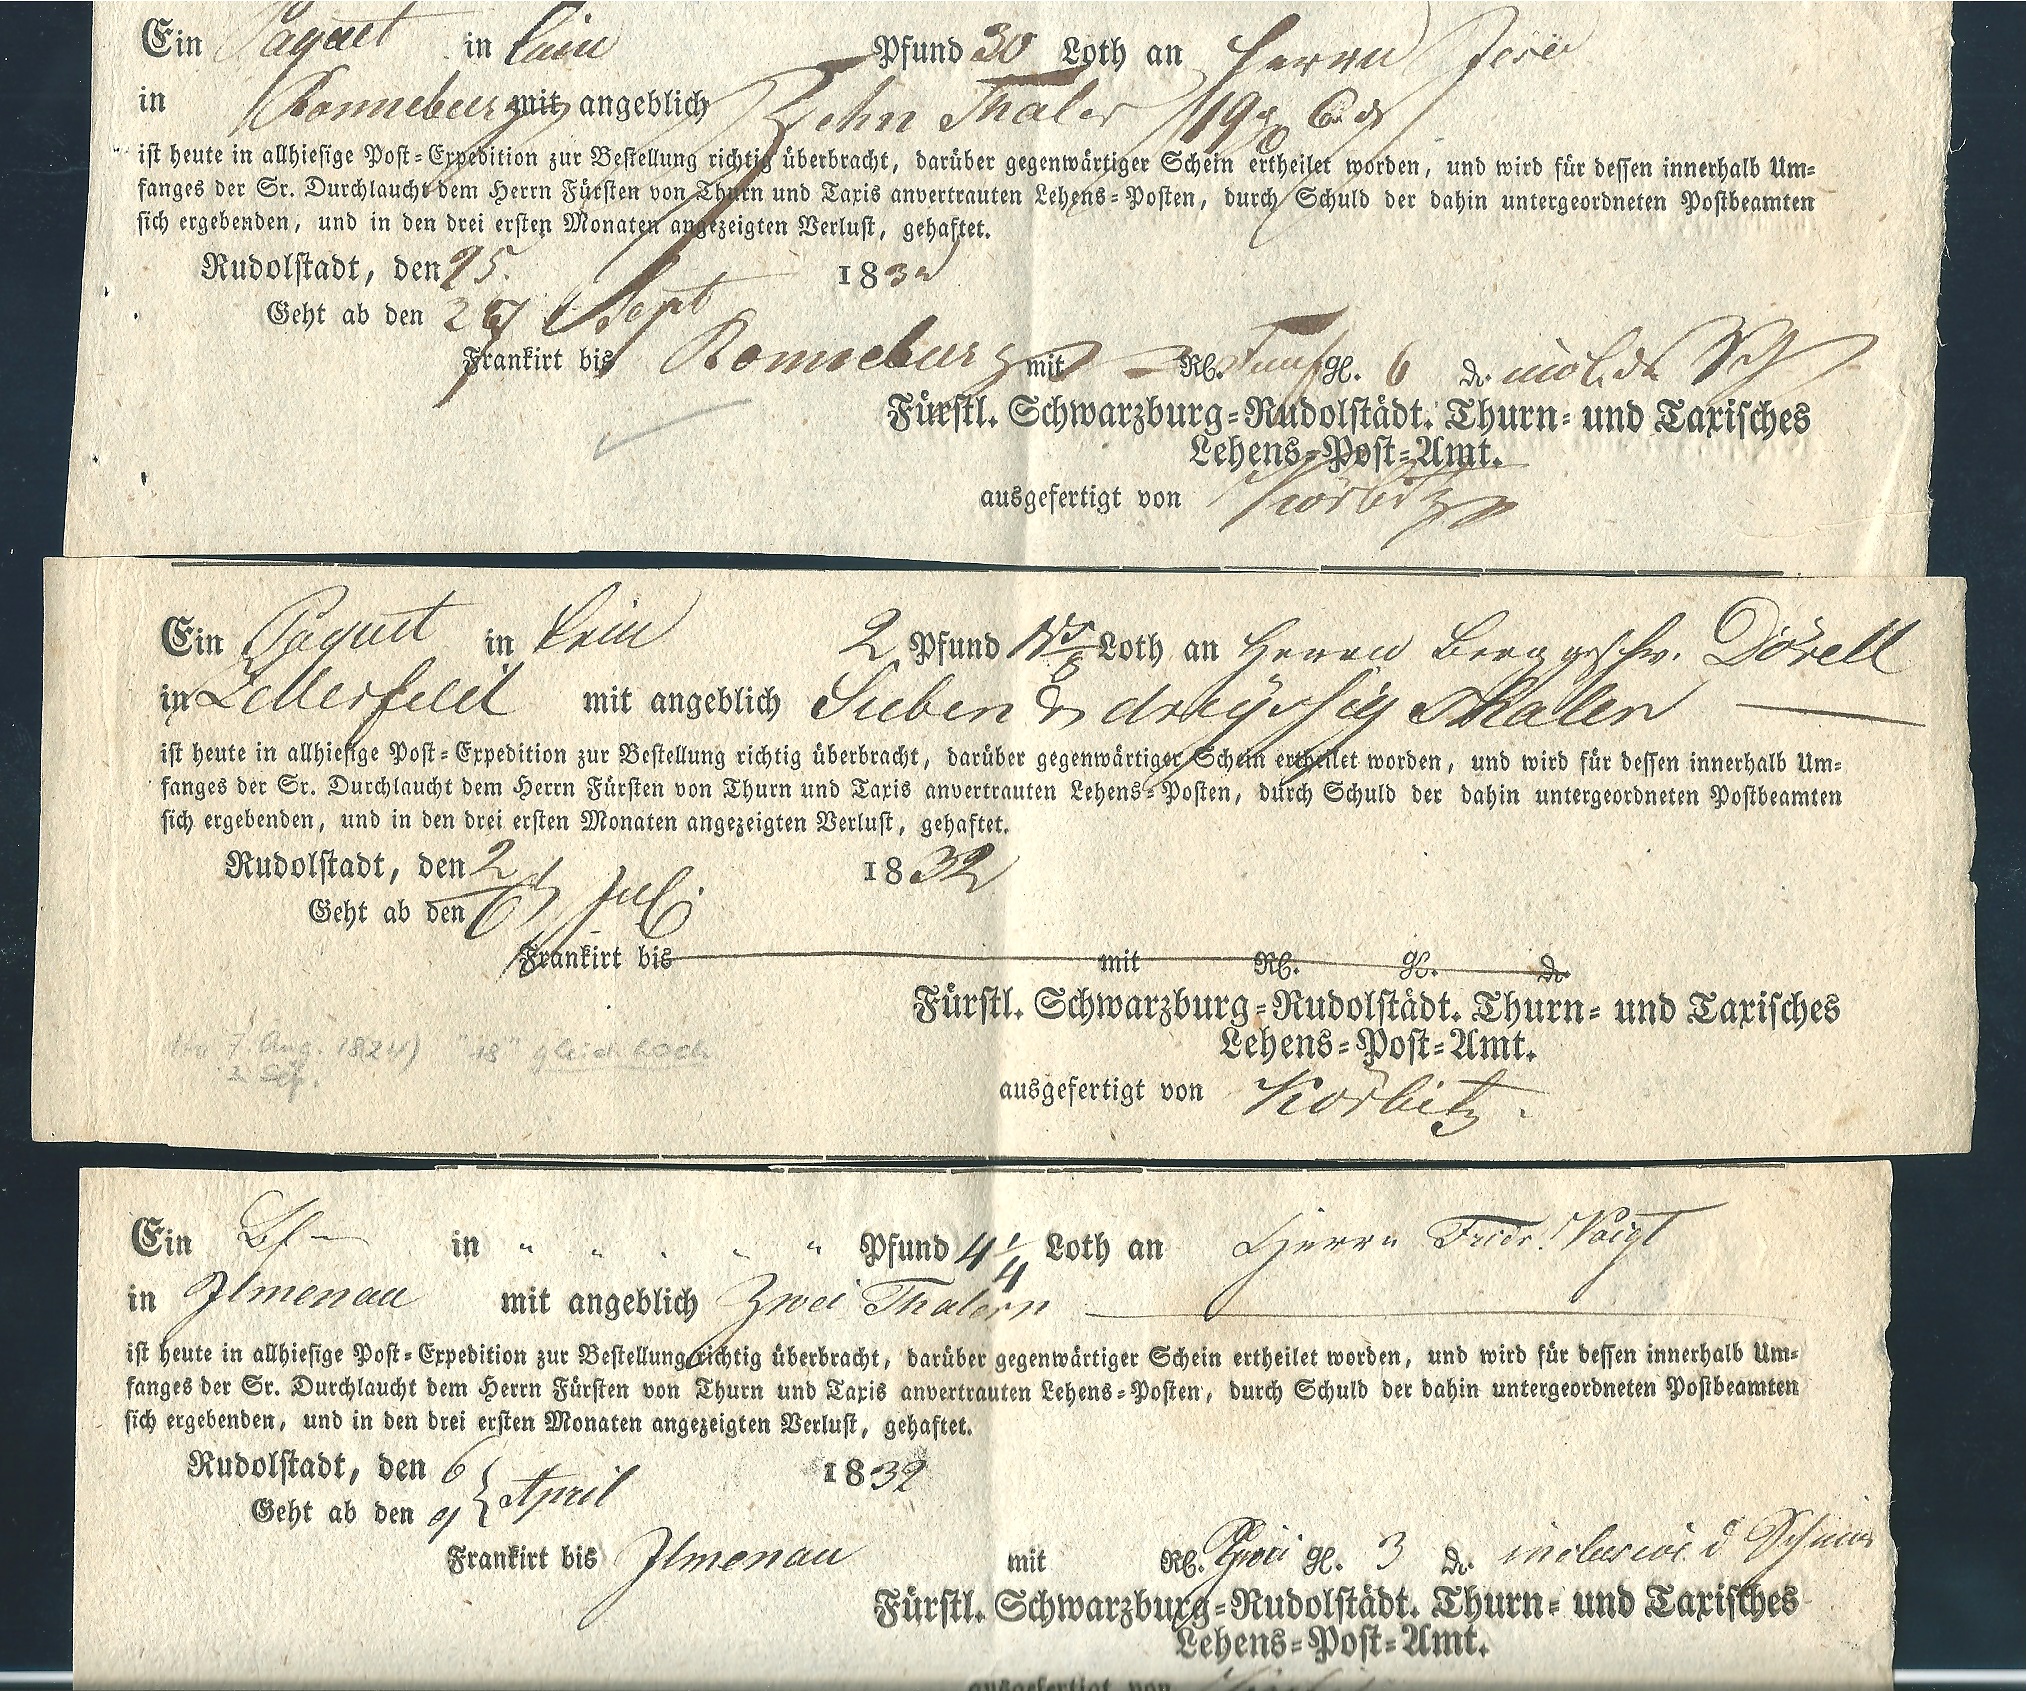 Ein Paquet in Lein Pfund 30 Loth an Herrn
in Ronneburg mit angeblich Zehn Thaler 19 g 6 d
ist heute in allhiesige Post-Expedition zur Bestellung richtig überbracht, darüber gegenwärtiger Schein ertheilet worden, und wird für dessen innerhalb Um-
fanges der Sr. Durchlaucht dem Herrn Fürsten von Thurn und Taxis anvertrauten Lehens-Posten, durch Schuld der dahin untergeordneten Postbeamten
sich ergebenden, und in den drei ersten Monaten angezeigten Verlust, gehaftet.
Rudolstadt, den 25. 1832
Geht ab den Sept
Frankirt bis Ronneburg mit Rl. Fünf gl. 6 d.
Fürstl. Schwarzburg-Rudolstädt. Thurn- und Taxisches
Lehens-Post-Amt.
ausgefertigt von Körbitz
Ein Paquet in Lein 2 Pfund Loth an Herrn Berggeschw. Dörell
in Zellerfeld mit angeblich Sieben & dreyssig Thalern
ist heute in allhiesige Post-Expedition zur Bestellung richtig überbracht, darüber gegenwärtiger Schein ertheilet worden, und wird für dessen innerhalb Um-
fanges der Sr. Durchlaucht dem Herrn Fürsten von Thurn und Taxis anvertrauten Lehens-Posten, durch Schuld der dahin untergeordneten Postbeamten
sich ergebenden, und in den drei ersten Monaten angezeigten Verlust, gehaftet.
Rudolstadt, den 2 1832
Geht ab den 6 Juli
Frankirt bis mit Rl. gl. d.
Fürstl. Schwarzburg-Rudolstädt. Thurn- und Taxisches
Lehens-Post-Amt.
7. Aug. 1824) "18" gleich hoch
2. Sep.
ausgefertigt von Körbitz.
Ein Bf in " " " " " Pfund 4 1/4 Loth an Herrn Fridr. Voigt
in Ilmenau mit angeblich Zwei Thalern
ist heute in allhiesige Post-Expedition zur Bestellung richtig überbracht, darüber gegenwärtiger Schein ertheilet worden, und wird für dessen innerhalb Um-
fanges der Sr. Durchlaucht dem Herrn Fürsten von Thurn und Taxis anvertrauten Lehens-Posten, durch Schuld der dahin untergeordneten Postbeamten
sich ergebenden, und in den drei ersten Monaten angezeigten Verlust, gehaftet.
Rudolstadt, den 6 1832
Geht ab den 9 April
Frankirt bis Ilmenau mit Rl. Zwei gl. 3 d. inclusive d Schein
Fürstl. Schwarzburg-Rudolstädt. Thurn- und Taxisches
Lehens-Post-Amt.
ausgefertigt von